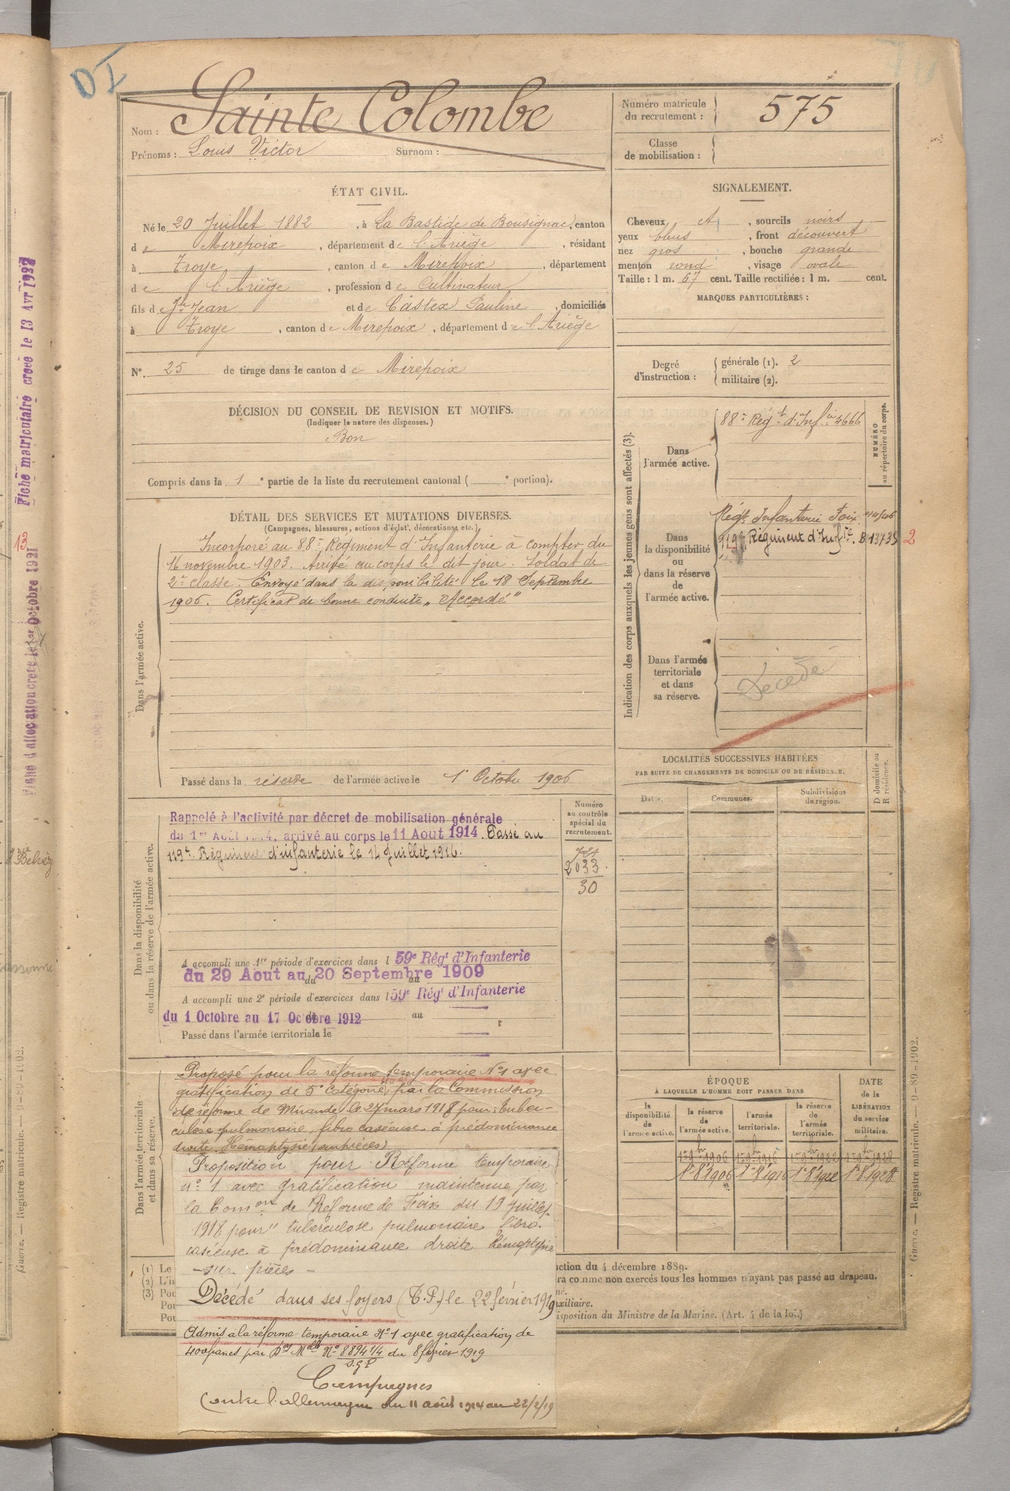 DI
Nom : Sainte Colombe
Prénoms : Louis Victor Surnom :
Numéro matricule du recrutement : 575
Classe de mobilisation :
ÉTAT CIVIL.
Né le 20 Juillet 1882, à La Bastide de Bousignac, canton
de Mirepoix, département de l'Ariège, résidant
à Troye, canton de Mirepoix, département
de l'Ariège, profession de Cultivateur
fils de Jn Jean et de Castex Pauline, domiciliés
à Troye, canton de Mirepoix, département de l'Ariège
N° 25 de tirage dans le canton de Mirepoix
SIGNALEMENT.
Cheveux , sourcils noirs
yeux bleus, front découvert
nez gros, bouche grande
menton rond, visage ovale
Taille : 1 m. 67 cent. Taille rectifiée : 1 m. cent.
MARQUES PARTICULIÈRES :
Degré d'instruction : générale (1). 2
militaire (2).
DÉCISION DU CONSEIL DE REVISION ET MOTIFS.
(Indiquer la nature des dispenses.)
Bon
Compris dans la 1e partie de la liste du recrutement cantonal ( e portion).
DÉTAIL DES SERVICES ET MUTATIONS DIVERSES.
(Campagnes, blessures, actions d'éclat, décorations, etc.)
Dans l'armée active.
Incorporé au 88e Régiment d'Infanterie à compter du
16 novembre 1903. Arrivé au corps le dit jour. Soldat de
2e classe. Envoyé dans la disponibilité le 18 Septembre
1906. Certificat de bonne conduite "Accordé"
Passé dans la réserve de l'armée active le 1er Octobre 1906
Indication des corps auxquels les jeunes gens sont affectés (3).
NUMÉRO au répertoire du corps.
Dans l'armée active.
88e Regt d'Infie 4666
Dans la disponibilité ou dans la réserve de l'armée active.
Regt Infanterie Foix
119e Régiment d'Infie.
2
Dans l'armée territoriale et dans sa réserve.
Décédé
LOCALITÉS SUCCESSIVES HABITÉES
PAR SUITE DE CHANGEMENTS DE DOMICILE OU DE RÉSIDENCE.
Dates. Communes. Subdivisions de région. D domicile ou R résidence.
Dans la disponibilité ou dans la réserve de l'armée active.
Numéro au contrôle spécial du recrutement.
2033
30
Rappelé à l'activité par décret de mobilisation générale
du 1er Aout 1914, arrivé au corps le 11 Aout 1914. Passé au
119e Régiment d'infanterie le 14 Juillet 1916.
A accompli une 1re période d'exercices dans l 59e Régt d'Infanterie
du 29 Aout au 20 Septembre 1909
A accompli une 2e période d'exercices dans l 59e Régt d'Infanterie
du 1 Octobre au 17 Octobre 1912
Passé dans l'armée territoriale le
Dans l'armée territoriale et dans sa réserve.
Proposé pour la réforme temporaire N°1 avec
gratification de 5e catégorie par la Commission
de réforme de Mirande le 27 mars 1918 pour: tuber-
culose pulmonaire, fibro caséeuse à prédominance
droite, Hémoptysie sur pièces)
Proposition pour Réforme temporaire
n° 1 avec gratification maintenue par
la Comon de Réforme de Foix du 19 juillet
1918 pour "tuberculose pulmonaire fibro-
caséeuse à prédominance droite hémoptysie
sur pièces -
Décédé dans ses foyers (T.P.) le 22 février 1919
Admis à la réforme temporaire N°1 avec gratification de
400 francs par Don Mlle N° 8894 1/4 du 8 février 1919
Campagnes
Contre l'allemagne du 11 août 1914 au 22/2/19
ÉPOQUE
À LAQUELLE L'HOMME DOIT PASSER DANS
la disponibilité de l'armée active. la réserve de l'armée active. l'armée territoriale. la réserve de l'armée territoriale. DATE de la LIBÉRATION du service militaire.
1er 8bre 1906 1er 8bre 1916 1er 8bre 1922 1er 8bre 1928
(1) Le
(2) L'i
(3) Pou
ction du 4 décembre 1889.
ra comme non exercés tous les hommes n'ayant pas passé au drapeau.
uxiliaire.
isposition du Ministre de la Marine. (Art. 4 de la loi.)
Guerre. — Registre matricule. — 9-89-1902.
Fiche matriculaire créée le 13 Avr 1932
Fiche d'allocation créée le 1er Octobre 1931